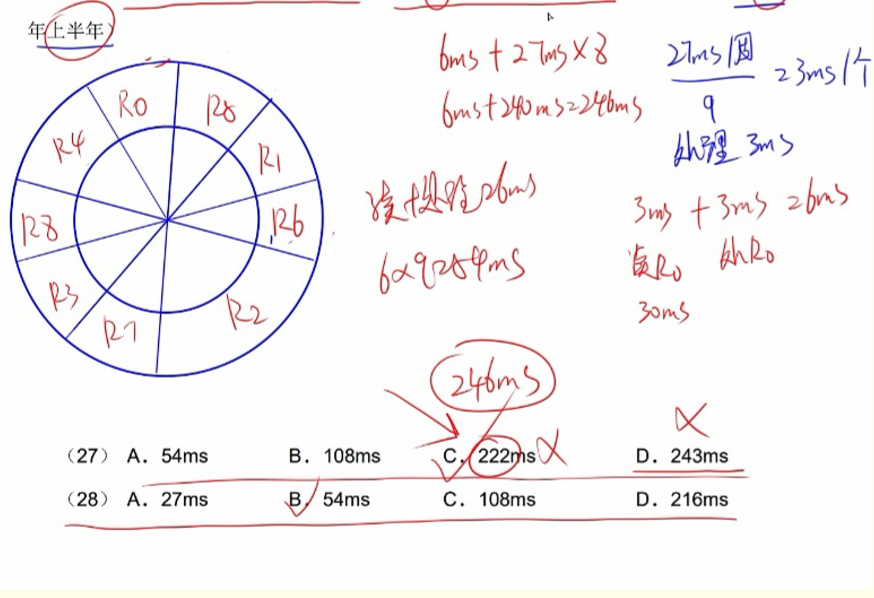 年上半年）
R0
R5
R1
R6
R2
R7
R3
R8
R4
6ms + 27ms × 8
6ms + 240ms = 246ms
27ms/周
9
= 3ms/个
处理 3ms
读+处理 6ms
6×9=54ms
3ms + 3ms = 6ms
读R0 处R0
30ms
246ms
（27） A．54ms B．108ms C．222ms D．243ms
（28） A．27ms B．54ms C．108ms D．216ms